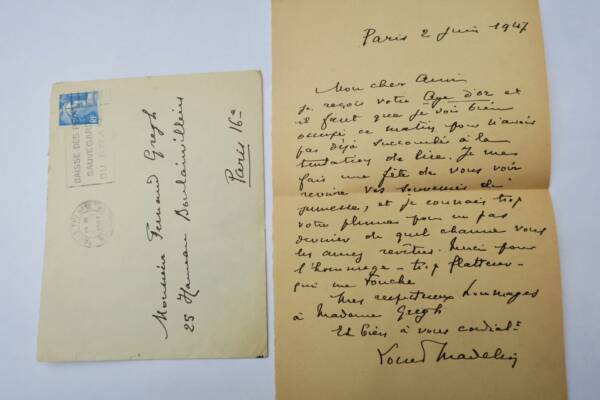 BAISSE DES P
SAUVEGARDE
DU FRANC
Monsieur Fernand Gregh
25 Hameau Boulainvilliers
Paris 16e
Paris 2 Juin 1947
Mon cher Ami
Je reçois votre Age d'or et
il faut que je sois bien
occupé ce matin pour n'avoir
pas déjà succombé à la
tentation de lire. Je me
fais une fête de vous voir
revivre vos souvenirs de
jeunesse, et je connais trop
votre plume pour ne pas
deviner de quel charme vous
les aurez revêtus. Merci pour
l'hommage - trop flatteur -
qui me touche
Mes respectueux hommages
à Madame Gregh
Et bien à vous cordialt
Louis Madelin